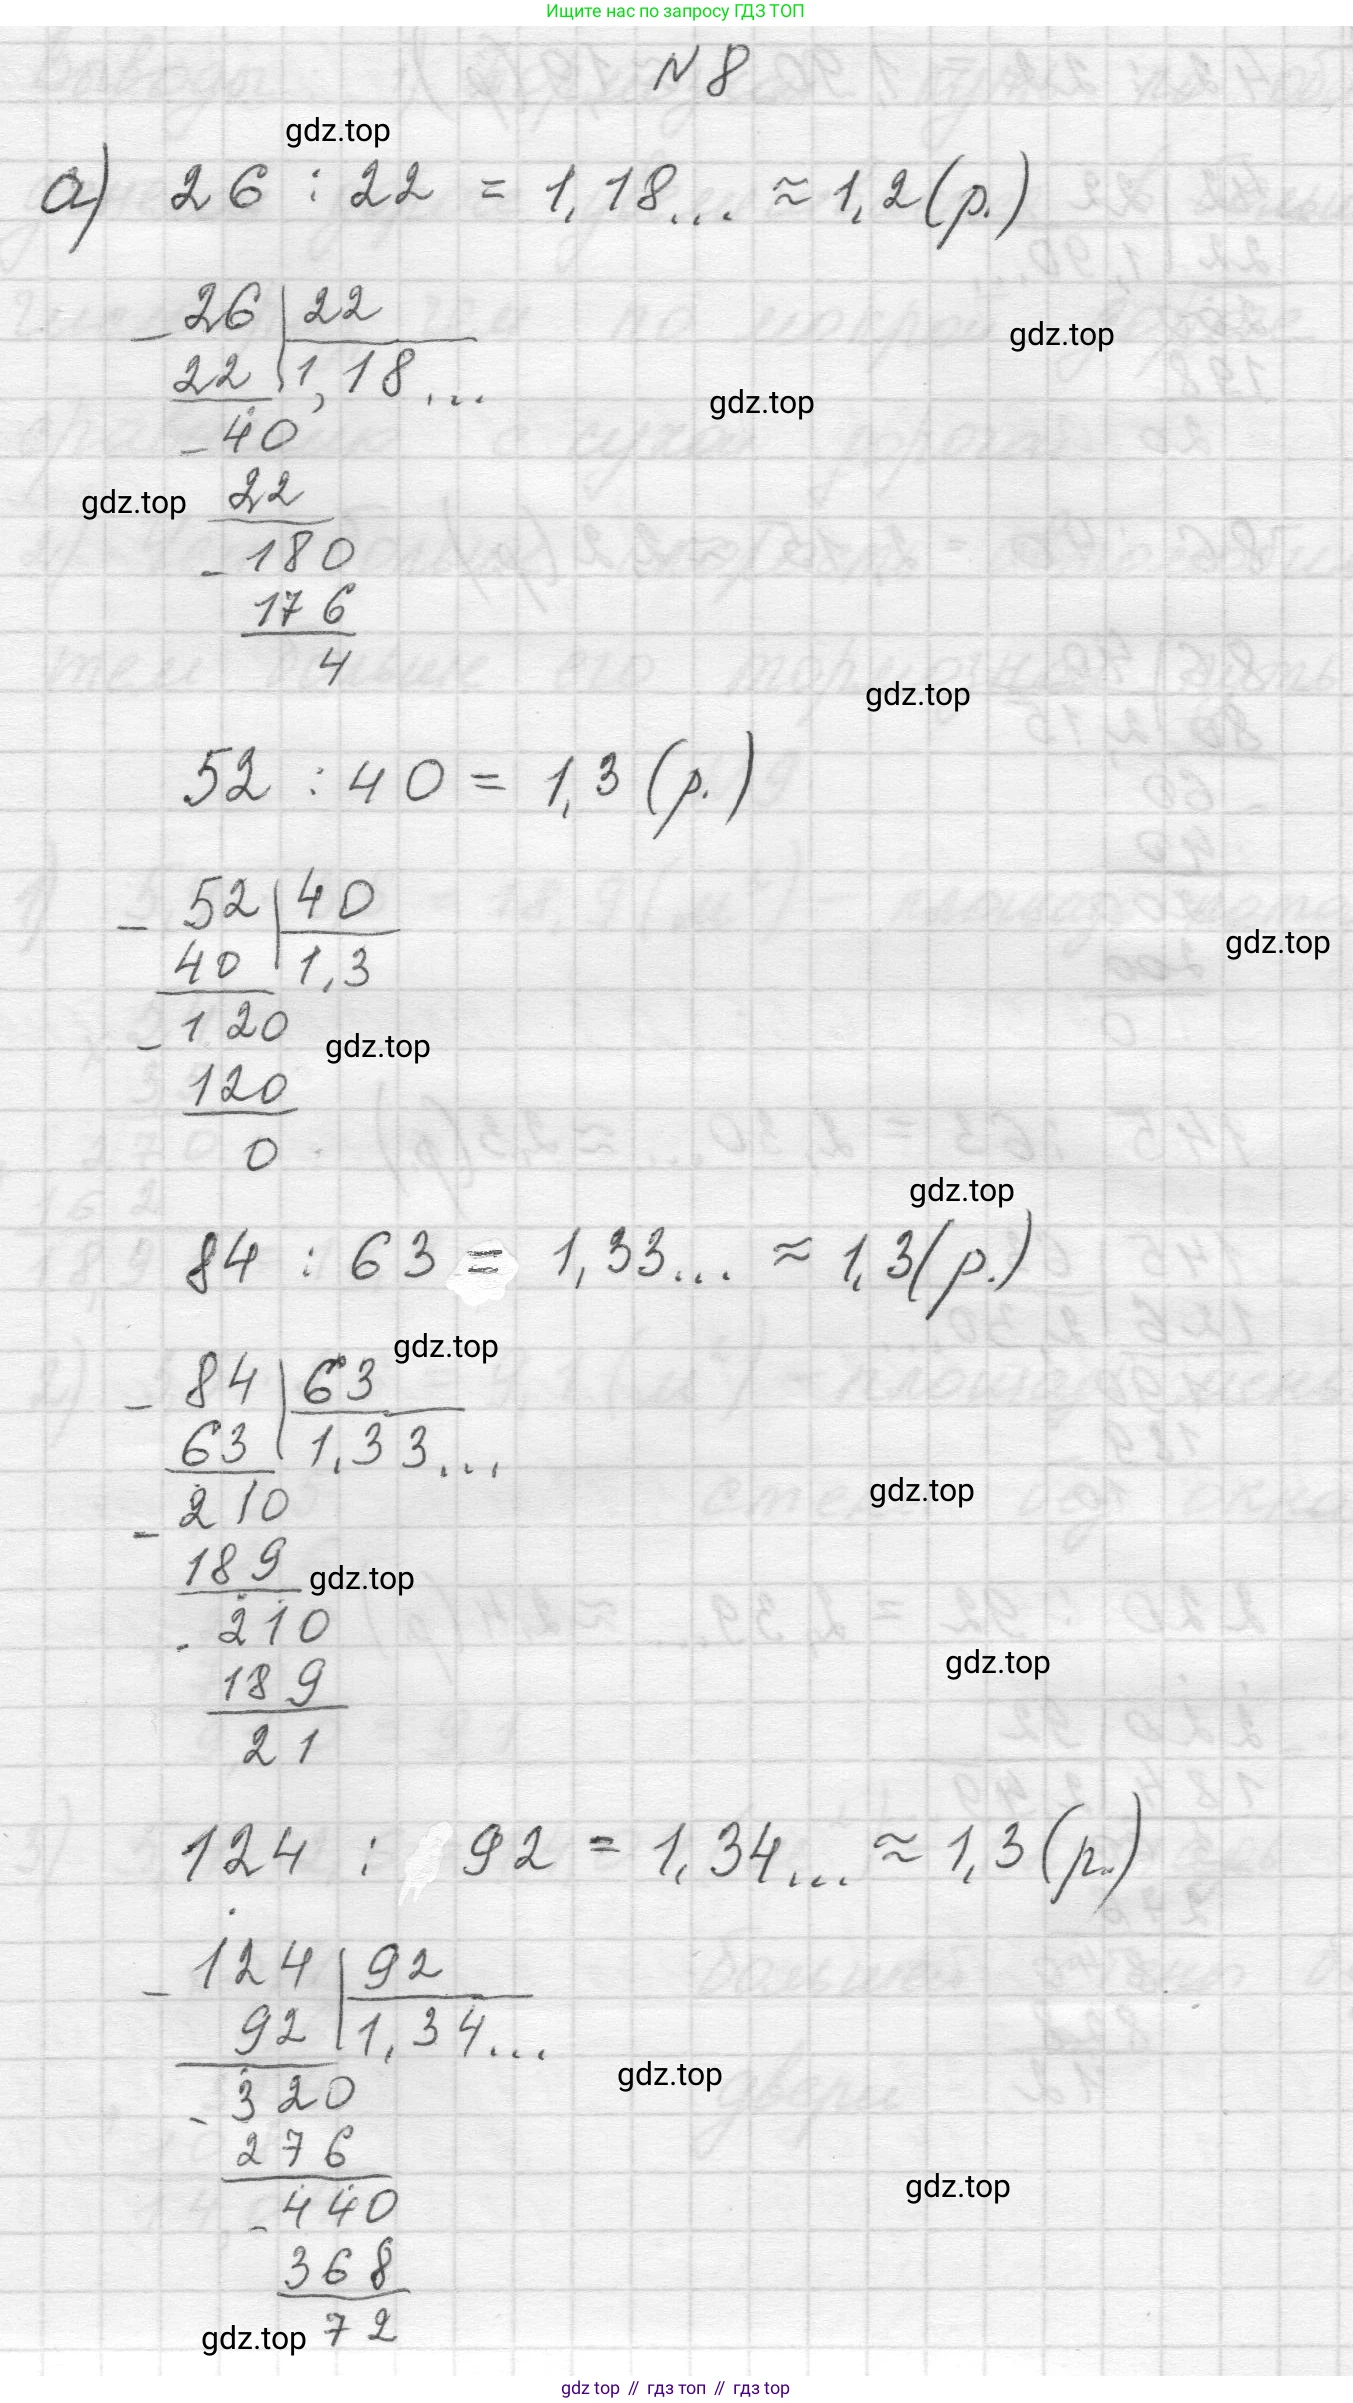 Ищите нас по запросу ГДЗ ТОП
N 8
gdz.top
а) 26 : 22 = 1,18... ≈ 1,2 (р.)
26 | 22
gdz.top
- 22 | 1,18...
gdz.top
- 40
gdz.top 22
- 180
176
4
gdz.top
52 : 40 = 1,3 (р.)
- 52 | 40
gdz.top
40 | 1,3
- 120
gdz.top
120
0
gdz.top
84 : 63 = 1,33... ≈ 1,3 (р.)
gdz.top
- 84 | 63
63 | 1,33...
gdz.top
- 210
189 gdz.top
- 210
gdz.top
189
21
124 : 92 = 1,34... ≈ 1,3 (р.)
- 124 | 92
92 | 1,34...
gdz.top
- 320
276
gdz.top
- 440
368
gdz.top 72
gdz top // гдз топ // гдз top